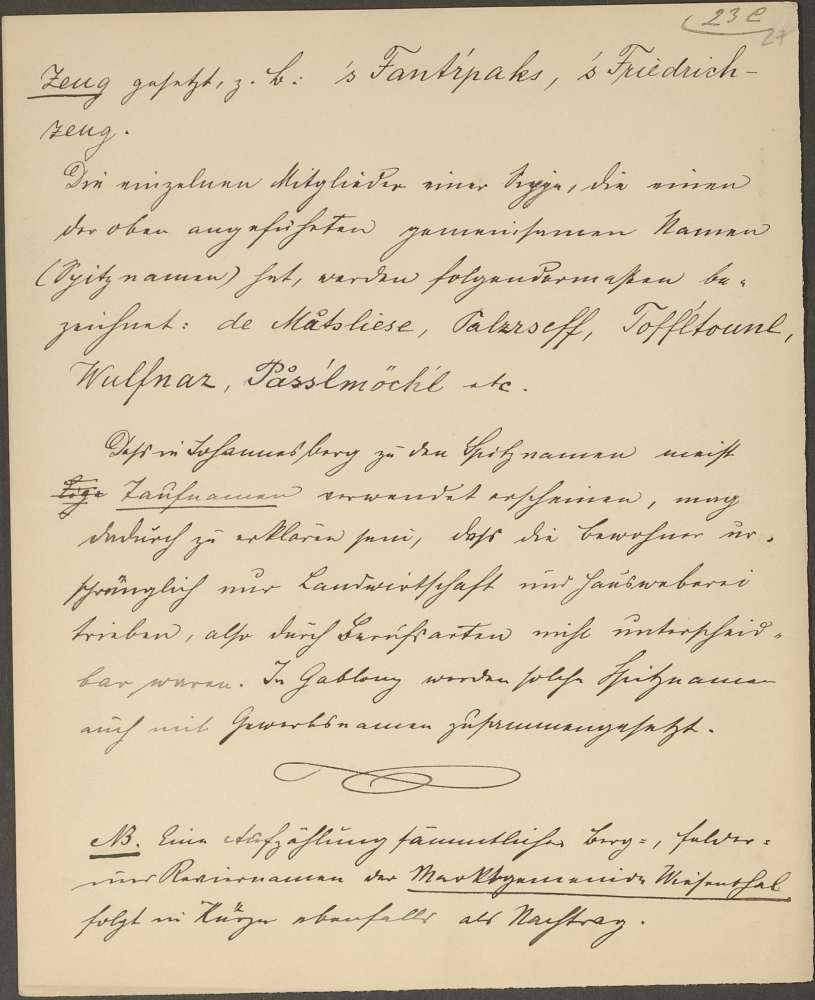 23 e
24
Zeug gesetzt, z. B.: 's Fantípaks, 's Friedrich-
zeug.
Die einzelnen Mitglieder einer Sippe, die einen
der oben angeführten gemeinsamen Namen
(Spitznamen) hat, werden folgendermassen be-
zeichnet: de Måtsliese, Palzrseff, Toffltounl,
Wulfnaz, Påss'lmöch'l etc.
Dass in Johannesberg zu den Spitznamen meist
Taufnamen verwendet erscheinen, mag
dadurch zu erklären sein, dass die Bewohner ur-
sprünglich nur Landwirtschaft und Hausweberei
trieben, also durch Berufsarten nicht unterscheid-
bar waren. In Gablonz werden solche Spitznamen
auch mit Gewerbsnamen zusammengesetzt.
NB. Eine Aufzählung sämmtlicher Berg-, Felder-
und Reviernamen der Marktgemeinde Wiesenthal
folgt in Kürze ebenfalls als Nachtrag.